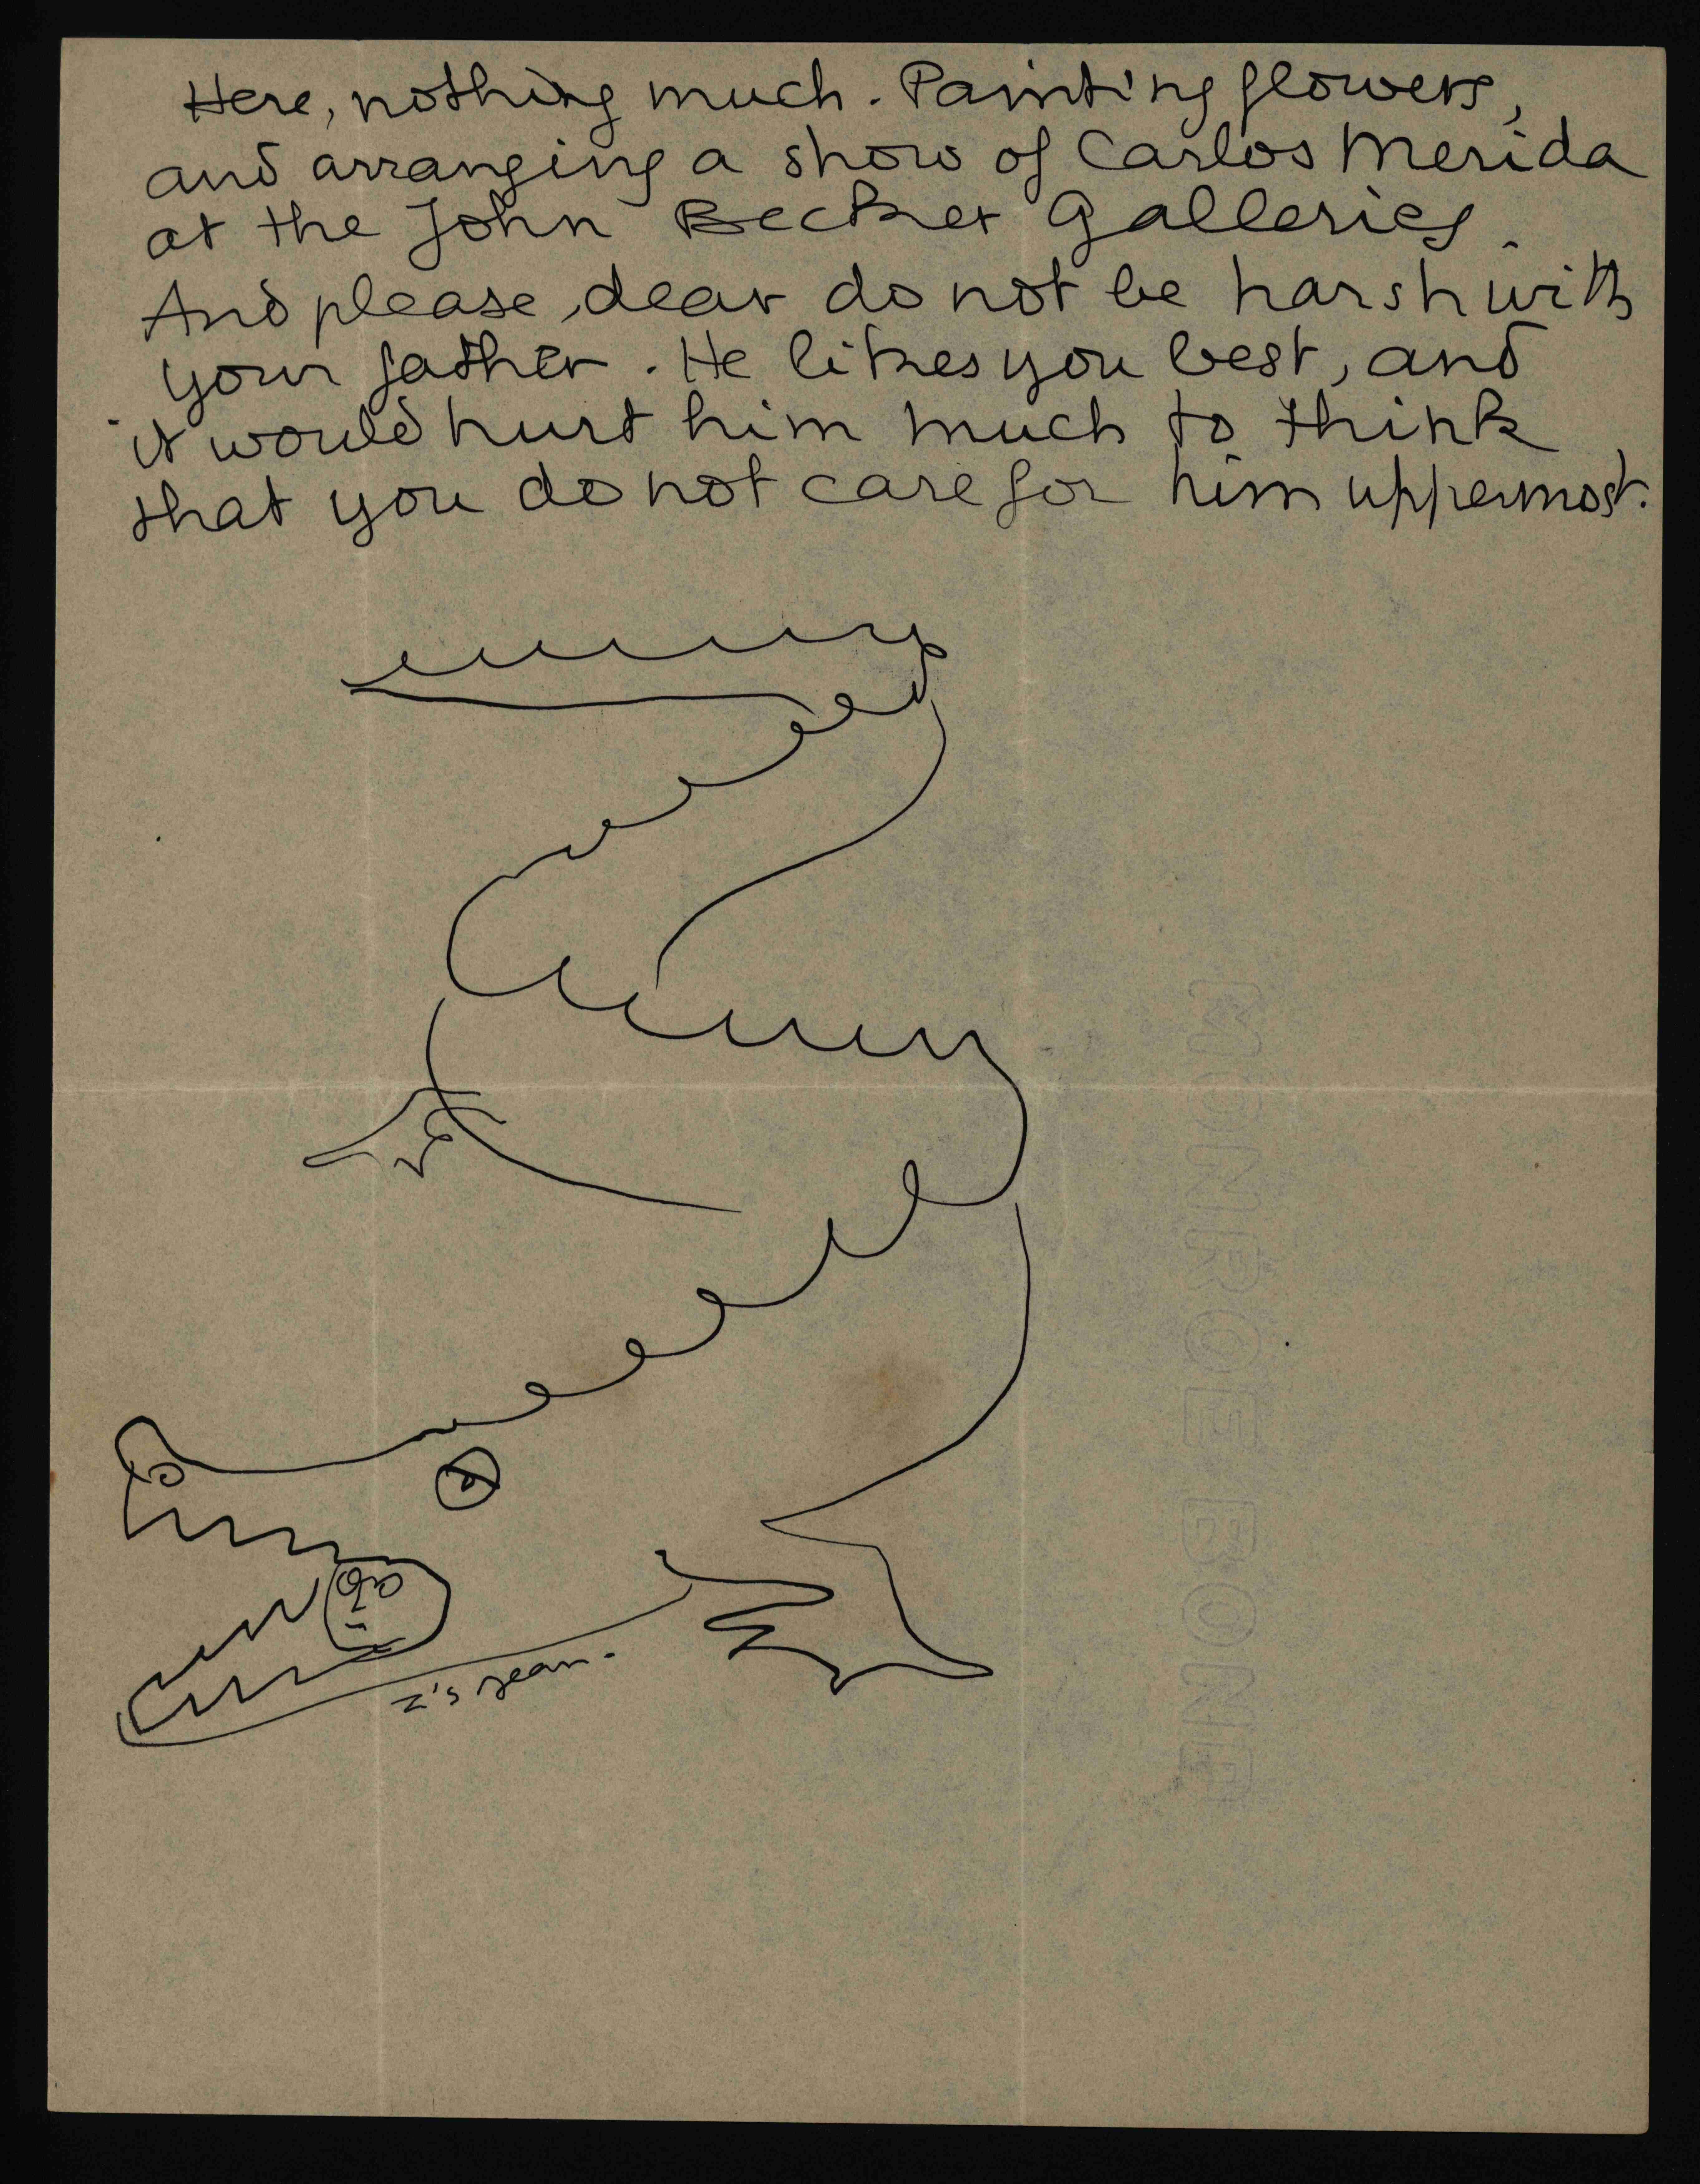 Here, nothing much. Painting flowers,
and arranging a show of Carlos Merida
at the John Becker Galleries.
And please, dear do not be harsh with
your father. He likes you best, and
it would hurt him much to think
that you do not care for him uppermost.
z's jean.
MONROE BOND